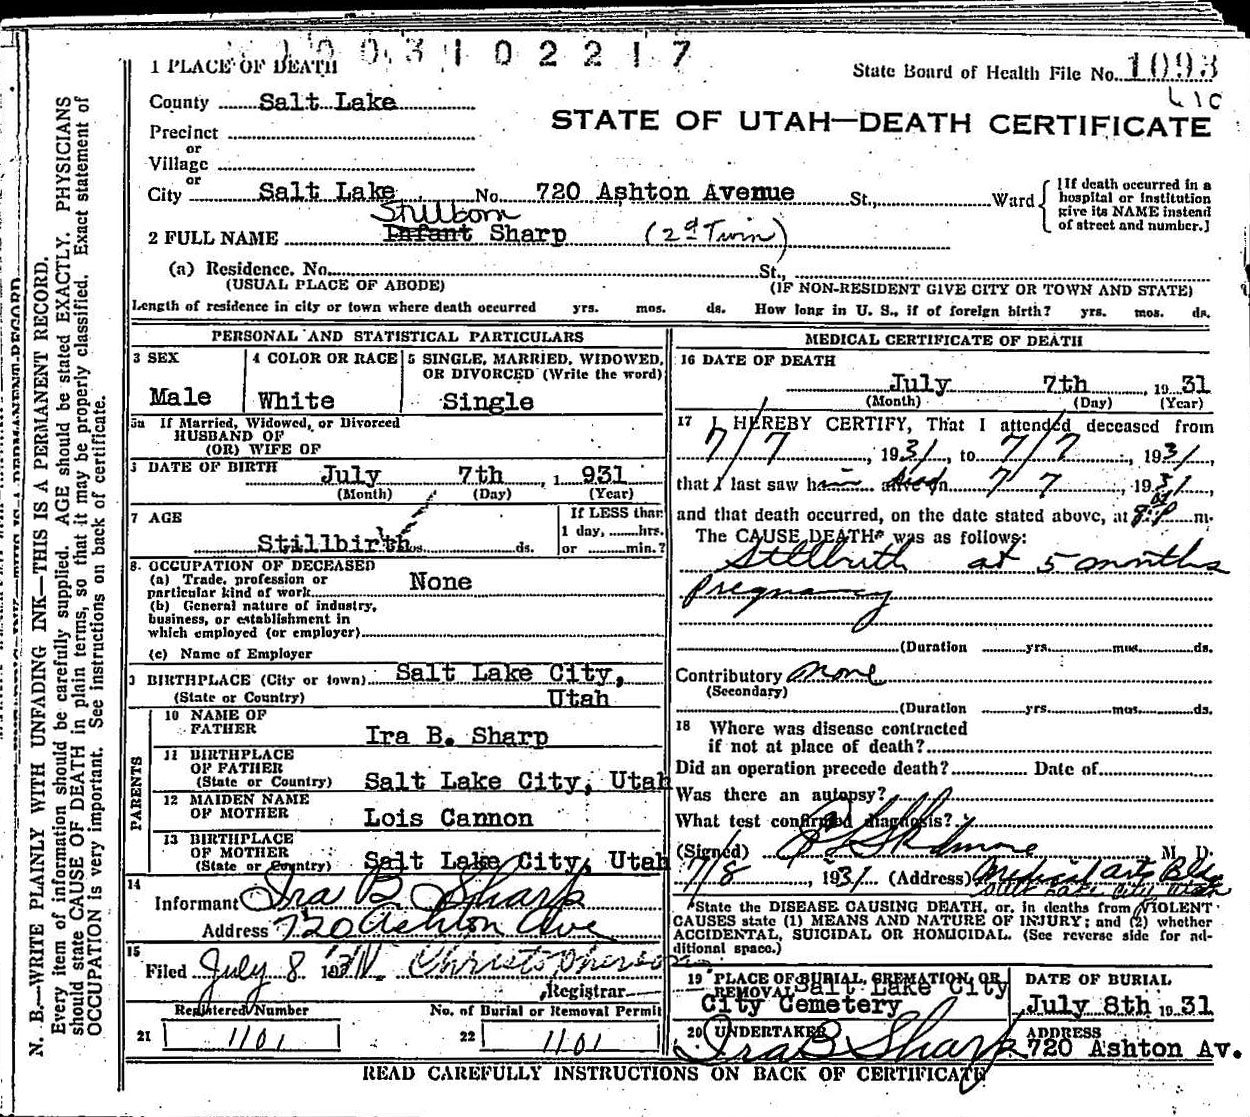 1003102217
1 PLACE OF DEATH
State Board of Health File No. 1093
County Salt Lake
STATE OF UTAH—DEATH CERTIFICATE
Precinct
or
Village
or
City Salt Lake No. 720 Ashton Avenue St., Ward
[If death occurred in a
hospital or institution
give its NAME instead
of street and number.]
Stillborn
2 FULL NAME Infant Sharp (2d Twin)
(a) Residence. No. St.,
(USUAL PLACE OF ABODE) (IF NON-RESIDENT GIVE CITY OR TOWN AND STATE)
Length of residence in city or town where death occurred yrs. mos. ds. How long in U. S., if of foreign birth? yrs. mos. ds.
PERSONAL AND STATISTICAL PARTICULARS
3 SEX
Male
4 COLOR OR RACE
White
5 SINGLE, MARRIED, WIDOWED,
OR DIVORCED (Write the word)
Single
5a If Married, Widowed, or Divorced
HUSBAND OF
(OR) WIFE OF
DATE OF BIRTH July 7th, 1931
(Month) (Day) (Year)
7 AGE
Stillbirth ds.
If LESS than
1 day, hrs.
or min.?
8. OCCUPATION OF DECEASED
(a) Trade, profession or
particular kind of work None
(b) General nature of industry,
business, or establishment in
which employed (or employer)
(c) Name of Employer
BIRTHPLACE (City or town) Salt Lake City,
(State or Country) Utah
PARENTS
10 NAME OF
FATHER Ira B. Sharp
11 BIRTHPLACE
OF FATHER
(State or Country) Salt Lake City, Utah
12 MAIDEN NAME
OF MOTHER Lois Cannon
13 BIRTHPLACE
OF MOTHER
(State or Country) Salt Lake City, Utah
14
Informant Ira B Sharp
Address 720 Ashton Ave
15
Filed July 8 1931
Registrar
Registered Number
21 1101
No. of Burial or Removal Permit
22 1101
MEDICAL CERTIFICATE OF DEATH
16 DATE OF DEATH
July 7th, 1931
(Month) (Day) (Year)
17 I HEREBY CERTIFY, That I attended deceased from
7/7, 1931, to 7/7, 1931,
that I last saw him alive on 7 7, 1931,
and that death occurred, on the date stated above, at m.
The CAUSE DEATH* was as follows:
Stillbirth at 5 months
pregnancy
(Duration yrs. mos. ds.
Contributory none
(Secondary)
(Duration yrs. mos. ds.
18 Where was disease contracted
if not at place of death?
Did an operation precede death? Date of
Was there an autopsy?
What test confirmed diagnosis?
(Signed) Skidmore M. D.
7/8, 1931 (Address) Medical Arts Bldg
Salt Lake City Utah
*State the DISEASE CAUSING DEATH, or, in deaths from VIOLENT
CAUSES state (1) MEANS AND NATURE OF INJURY; and (2) whether
ACCIDENTAL, SUICIDAL OR HOMICIDAL. (See reverse side for ad-
ditional space.)
19 PLACE OF BURIAL, CREMATION, OR
REMOVAL Salt Lake City
City Cemetery
DATE OF BURIAL
July 8th 1931
20 UNDERTAKER
Ira B Sharp
ADDRESS
720 Ashton Av.
READ CAREFULLY INSTRUCTIONS ON BACK OF CERTIFICATE
N. B.—WRITE PLAINLY WITH UNFADING INK—THIS IS A PERMANENT RECORD.
Every item of information should be carefully supplied. AGE should be stated EXACTLY. PHYSICIANS
should state CAUSE OF DEATH in plain terms, so that it may be properly classified. Exact statement of
OCCUPATION is very important. See instructions on back of certificate.